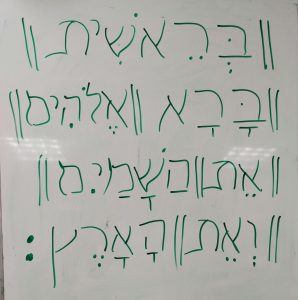 ||בְּרֵאשִׁית||
||בָּרָא||אֱלֹהִים||
||אֵת||הַשָּׁמַיִם||
||וְאֵת||הָאָרֶץ: